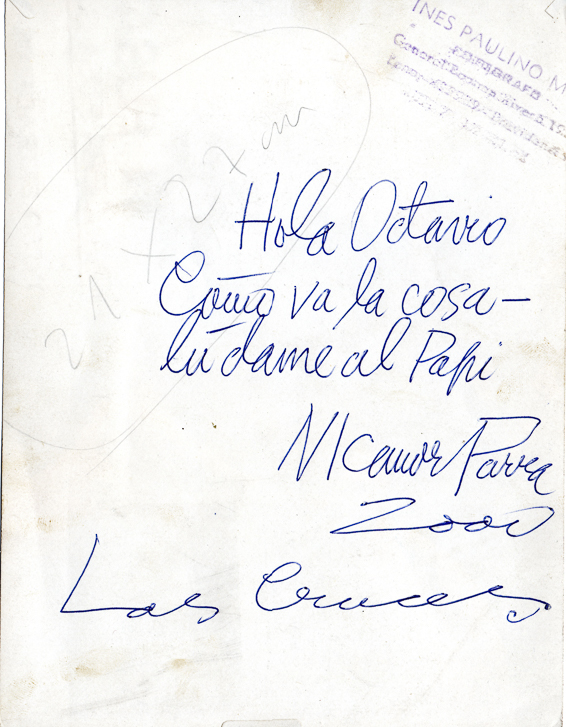 INES PAULINO M
FOTOGRAFO
21 x 27 cm
Hola Octavio
Cómo va la cosa –
lúdame al Papi
Nicanor Parra
2000
Las Cruces